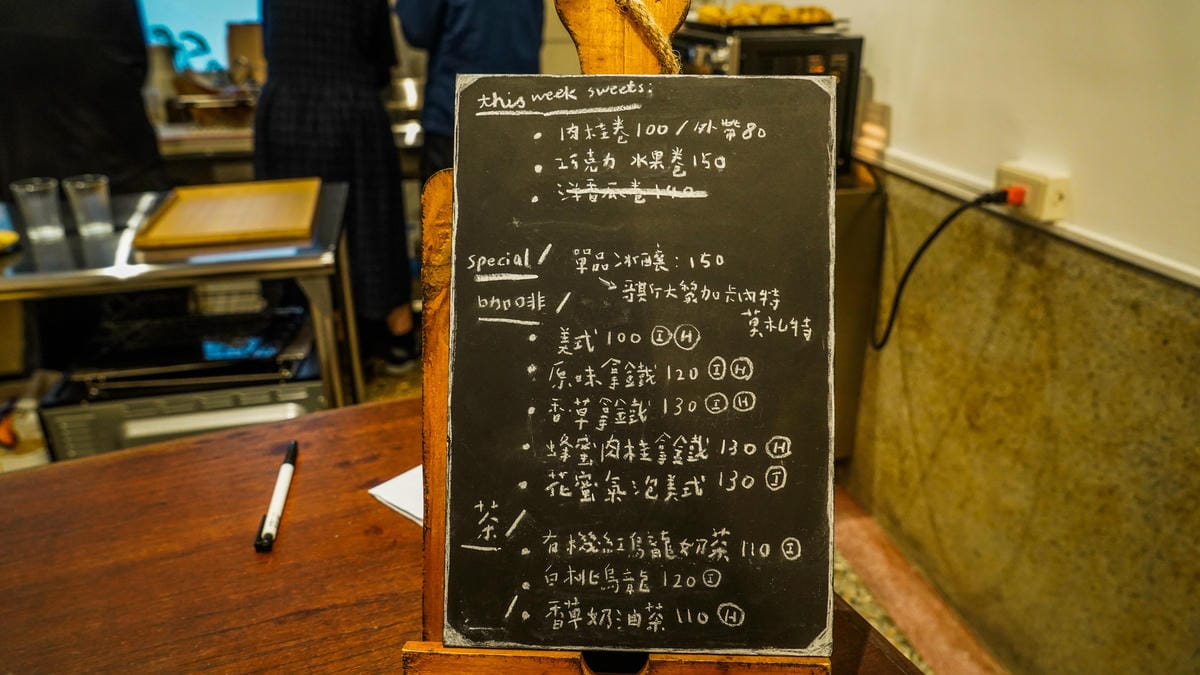 this week sweets:
• 肉桂卷 100 / 外帶80
• 巧克力 水果卷 150
• 洋香瓜卷 140
special / 單品冰釀: 150
→ 哥斯大黎加 卡內特
莫札特
咖啡 /
• 美式 100 Ⓘ Ⓗ
• 原味拿鐵 120 Ⓘ Ⓗ
• 香草拿鐵 130 Ⓘ Ⓗ
• 蜂蜜肉桂拿鐵 130 Ⓗ
• 花蜜氣泡美式 130 Ⓘ
茶 /
• 有機紅烏龍奶茶 110 Ⓘ
• 白桃烏龍 120 Ⓘ
/ • 香草奶油茶 110 Ⓗ